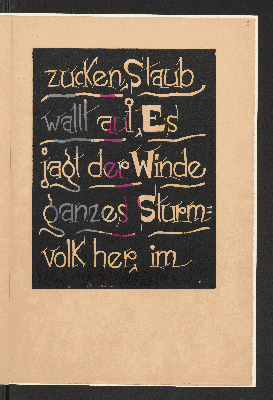 zucken, Staub
wallt auf, Es
jagt der Winde
ganzes Sturm=
volk her, im